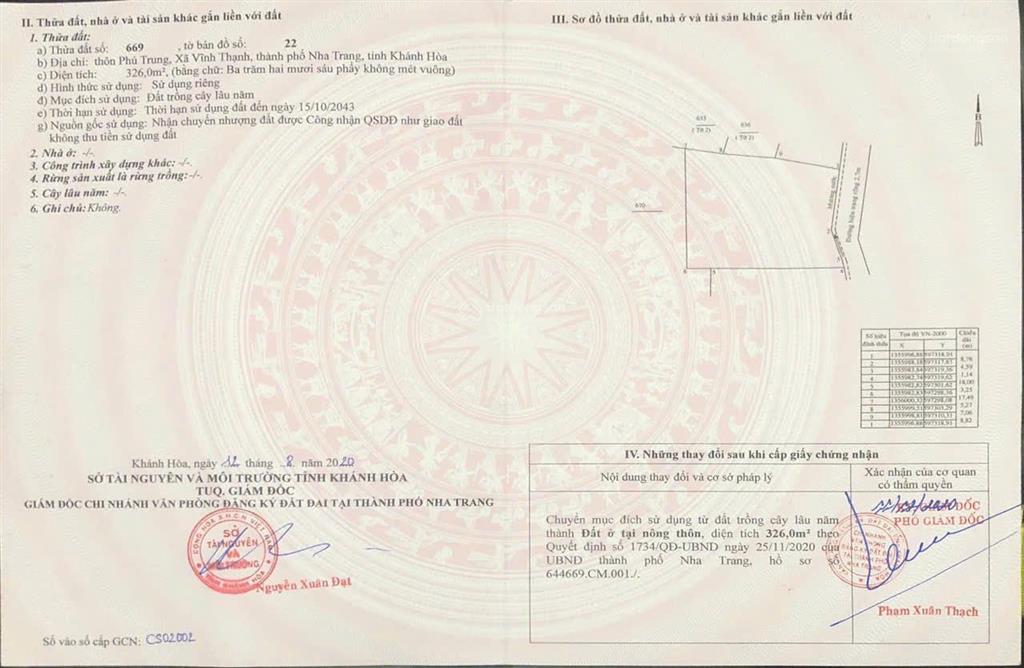 II. Thửa đất, nhà ở và tài sản khác gắn liền với đất
1. Thửa đất:
a) Thửa đất số: 669 , tờ bản đồ số: 22
b) Địa chỉ: thôn Phú Trung, Xã Vĩnh Thạnh, thành phố Nha Trang, tỉnh Khánh Hòa
c) Diện tích: 326,0m², (bằng chữ: Ba trăm hai mươi sáu phẩy không mét vuông)
d) Hình thức sử dụng: Sử dụng riêng
đ) Mục đích sử dụng: Đất trồng cây lâu năm
e) Thời hạn sử dụng: Thời hạn sử dụng đất đến ngày 15/10/2043
g) Nguồn gốc sử dụng: Nhận chuyển nhượng đất được Công nhận QSDĐ như giao đất
không thu tiền sử dụng đất
2. Nhà ở: -/-.
3. Công trình xây dựng khác: -/-.
4. Rừng sản xuất là rừng trồng:-/-.
5. Cây lâu năm: -/-.
6. Ghi chú: Không.
Khánh Hòa, ngày 12 tháng 8 năm 2020
SỞ TÀI NGUYÊN VÀ MÔI TRƯỜNG TỈNH KHÁNH HÒA
TUQ. GIÁM ĐỐC
GIÁM ĐỐC CHI NHÁNH VĂN PHÒNG ĐĂNG KÝ ĐẤT ĐAI TẠI THÀNH PHỐ NHA TRANG
SỞ
TÀI NGUYÊN
VÀ
MÔI TRƯỜNG
Nguyễn Xuân Đạt
Số vào sổ cấp GCN: CS02002
III. Sơ đồ thửa đất, nhà ở và tài sản khác gắn liền với đất
B
633
(Tờ 2)
636
(Tờ 2)
670
Mương nước
Đường hiện trạng rộng 2,5m
Số hiệu đỉnh thửa
Tọa độ VN-2000
Chiều dài (m)
X Y
1 1355996,88 597318,91
8,76
2 1355988,18 597317,87
4,59
3 1355983,84 597319,36
1,14
4 1355982,74 597319,62
18,00
5 1355982,82 597301,62
3,25
6 1355982,83 597298,36
17,49
7 1356000,32 597298,08
5,27
8 1355999,51 597303,29
7,06
9 1355998,81 597310,31
8,82
1 1355996,88 597318,91
IV. Những thay đổi sau khi cấp giấy chứng nhận
Nội dung thay đổi và cơ sở pháp lý
Xác nhận của cơ quan
có thẩm quyền
Chuyển mục đích sử dụng từ đất trồng cây lâu năm
thành Đất ở tại nông thôn, diện tích 326,0m² theo
Quyết định số 1734/QĐ-UBND ngày 25/11/2020 của
UBND thành phố Nha Trang, hồ sơ số
644669.CM.001./.
PHÓ GIÁM ĐỐC
Phạm Xuân Thạch